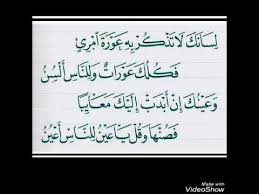 لِسَانَكَ لَا تَذْكُرْ بِهِ عَوْرَةَ امْرِئٍ
فَكُلُّكَ عَوْرَاتٌ وَلِلنَّاسِ أَلْسُنُ
وَعَيْنُكَ إِنْ أَبْدَتْ إِلَيْكَ مَعَايِبًا
فَصُنْهَا وَقُلْ يَا عَيْنُ لِلنَّاسِ أَعْيُنُ
Made with
VideoShow